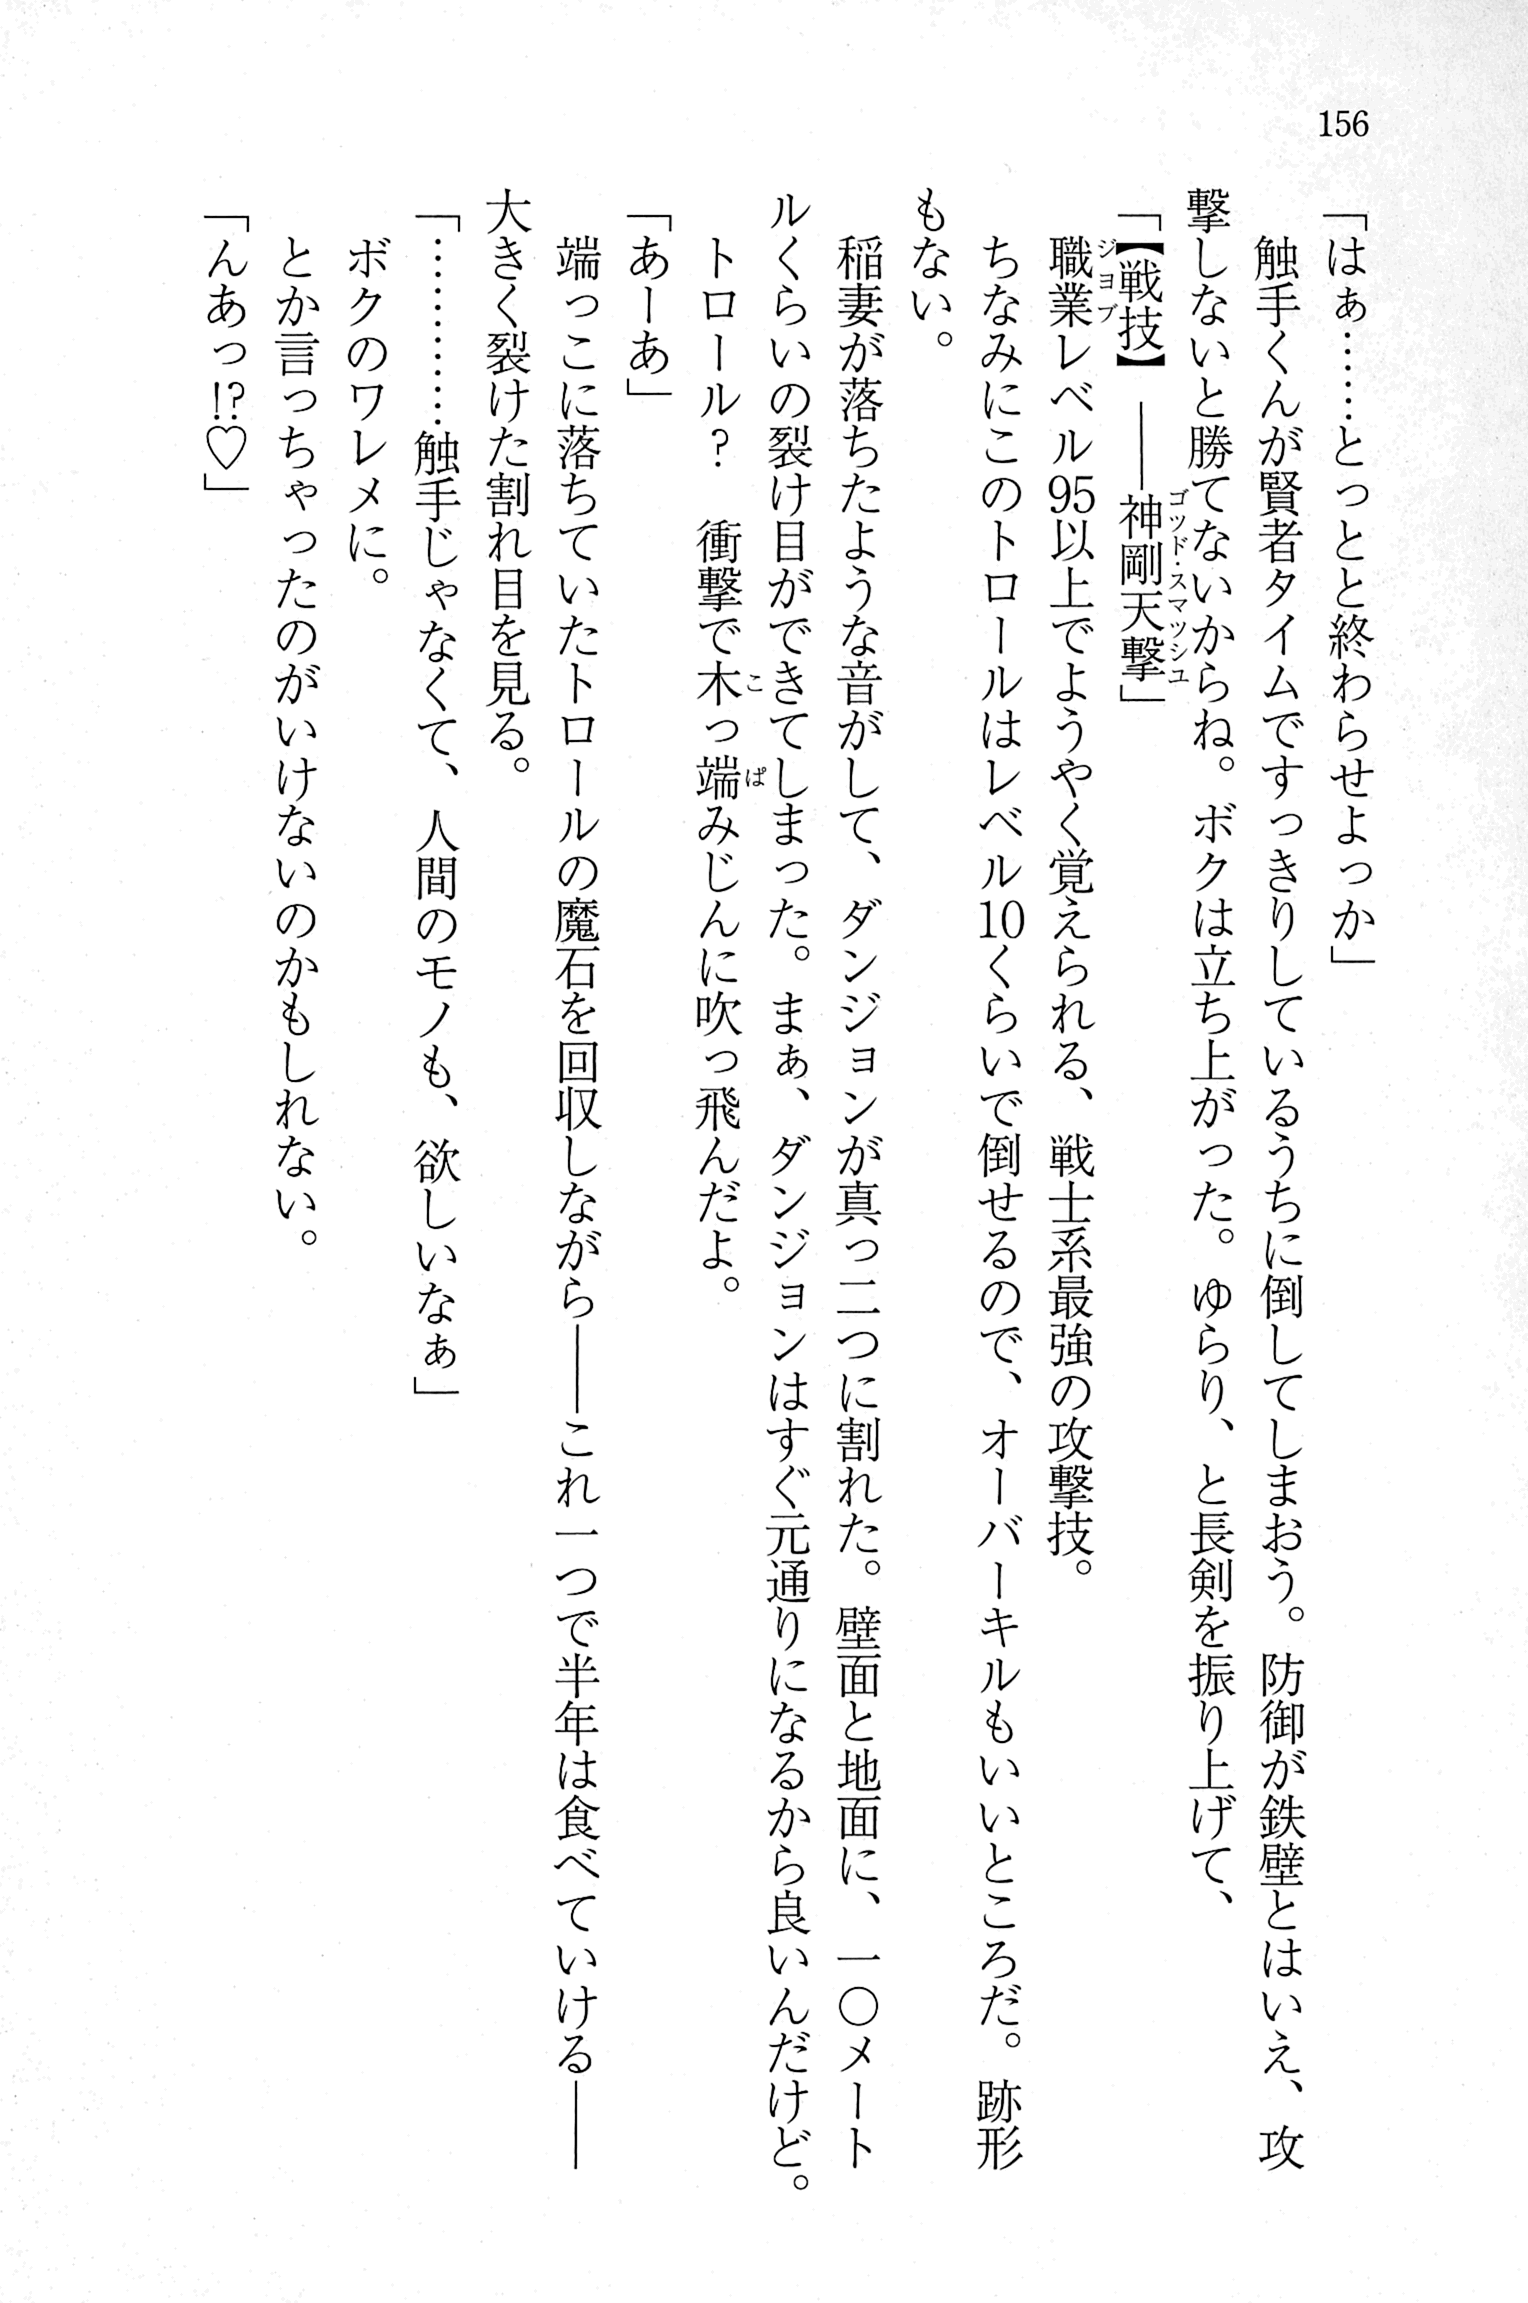 156
「はぁ……とっとと終わらせよっか」
　触手くんが賢者タイムですっきりしているうちに倒してしまおう。防御が鉄壁とはいえ、攻
撃しないと勝てないからね。ボクは立ち上がった。ゆらり、と長剣を振り上げて、
「【戦技】――神剛天撃ゴッド・スマッシュ」
　職業ジョブレベル95以上でようやく覚えられる、戦士系最強の攻撃技。
　ちなみにこのトロールはレベル10くらいで倒せるので、オーバーキルもいいところだ。跡形
もない。
　稲妻が落ちたような音がして、ダンジョンが真っ二つに割れた。壁面と地面に、一〇メート
ルくらいの裂け目ができてしまった。まぁ、ダンジョンはすぐ元通りになるから良いんだけど。
　トロール？　衝撃で木こっ端ぱみじんに吹っ飛んだよ。
「あーあ」
　端っこに落ちていたトロールの魔石を回収しながら――これ一つで半年は食べていける――
大きく裂けた割れ目を見る。
「…………触手じゃなくて、人間のモノも、欲しいなぁ」
　ボクのワレメに。
　とか言っちゃったのがいけないのかもしれない。
「んあっ!?♡」